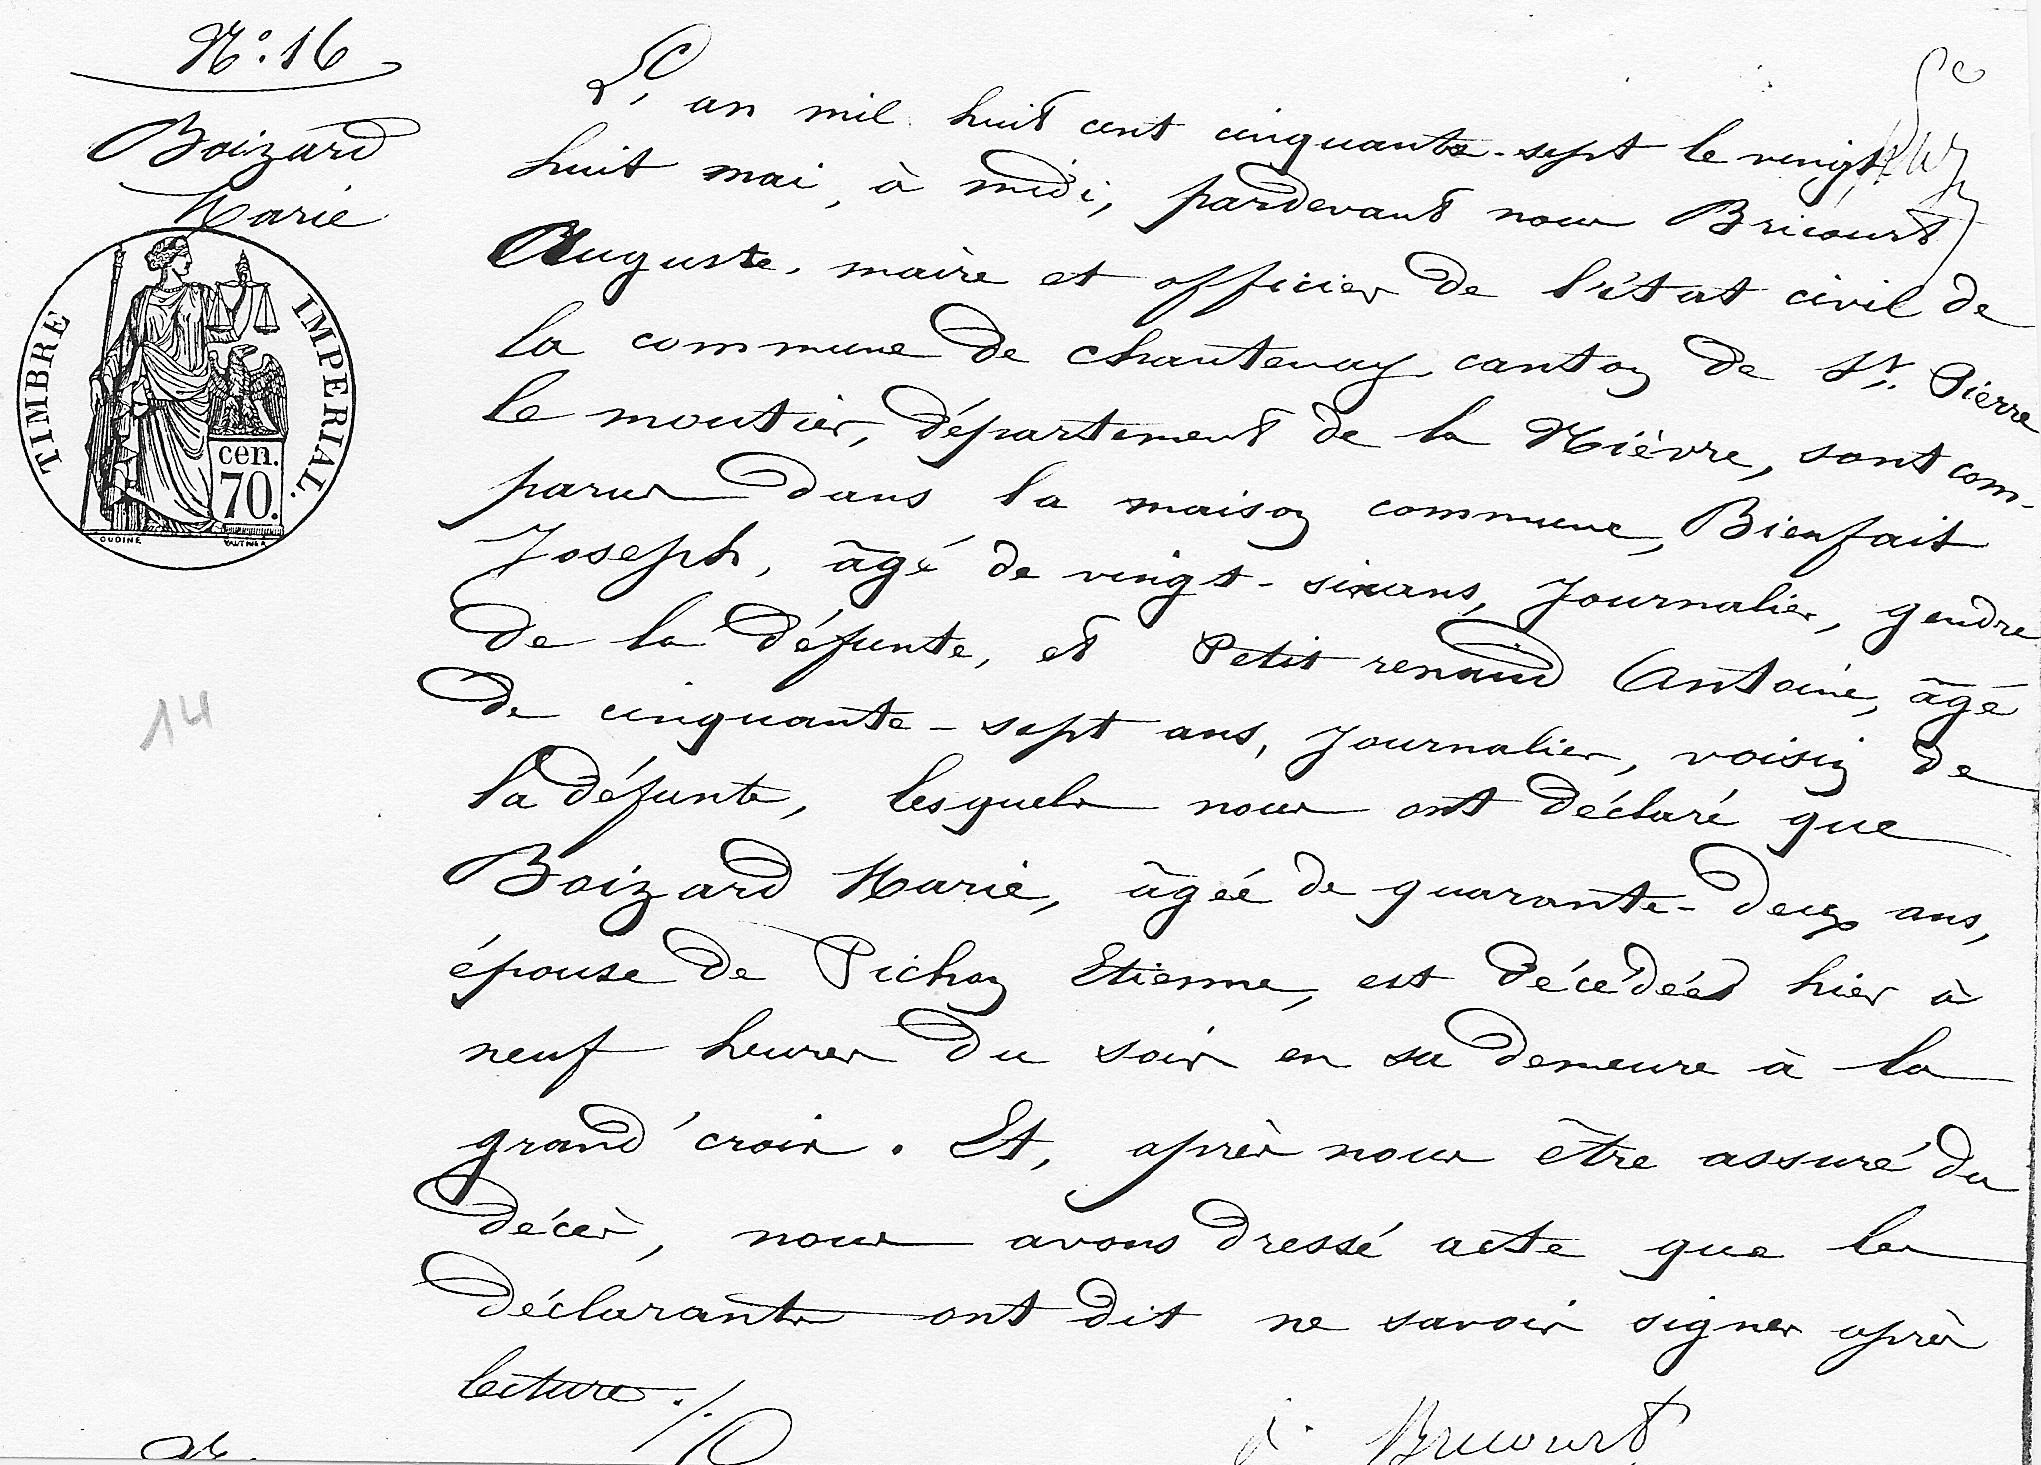 N°. 16
Boizard
Marie
TIMBRE IMPERIAL.
cen.
70.
OUDINÉ
14
L'an mil huit cent cinquante-sept le vingt
huit mai, à midi, pardevant nous Bricourt
Auguste, maire et officier de l'état civil de
la commune de chantenay canton de St. Pierre
le moutier, département de la Nièvre, sont com-
parus dans la maison commune, Bienfait
Joseph, âgé de vingt-six ans, Journalier, gendre
de la défunte, et Petit renaud Antoine, âgé
de cinquante-sept ans, Journalier, voisin de
la défunte, lesquels nous ont déclaré que
Boizard Marie, âgée de quarante-deux ans,
épouse de Pichon Etienne, est décédée hier à
neuf heures du soir en sa demeure à la
grand'croix. Et, après nous être assuré du
décès, nous avons dressé acte que les
déclarants ont dit ne savoir signer après
lecture ./.
Bricourt